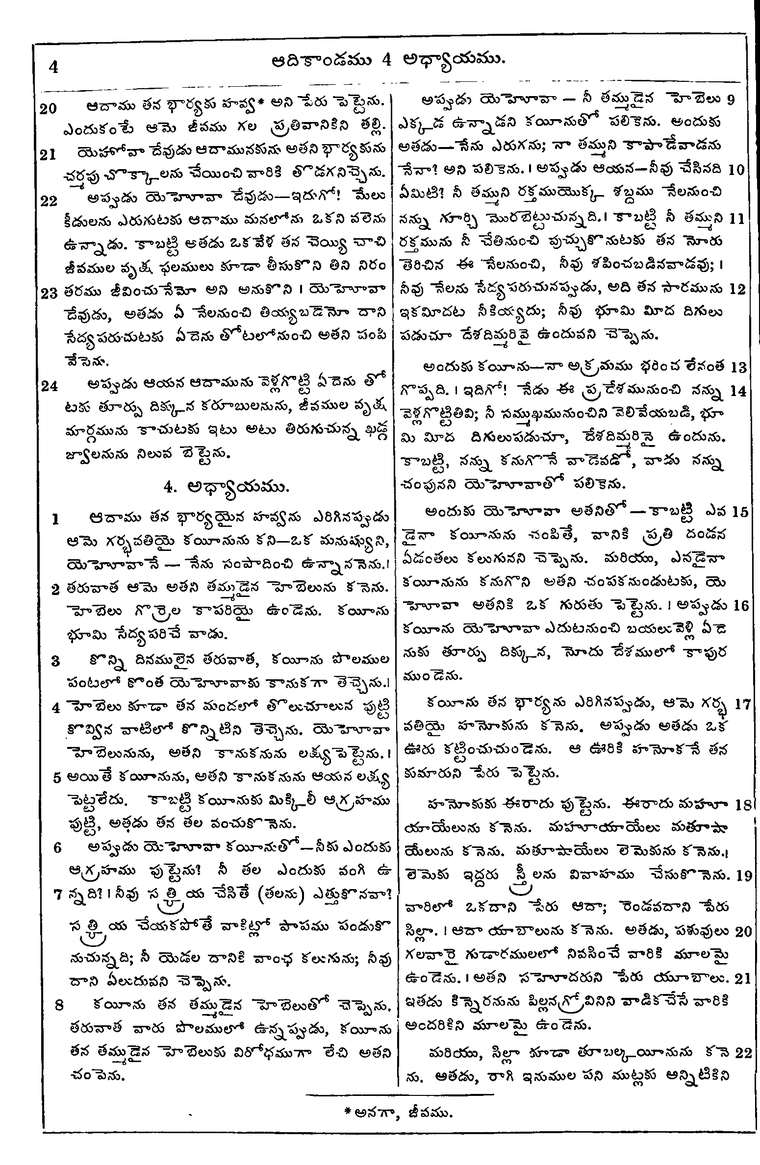 4
ఆదికాండము 4 అధ్యాయము.
20 ఆదాము తన భార్యకు హవ్వ* అని పేరు పెట్టెను.
ఎందుకంటే ఆమె జీవము గల ప్రతివానికిని తల్లి.
21 యెహోవా దేవుడు ఆదామునకును అతని భార్యకును
చర్మపు చొక్కాలను చేయించి వారికి తొడగనిచ్చెను.
22 అప్పుడు యెహోవా దేవుడు—ఇదుగో! మేలు
కీడులను ఎరుగుటకు ఆదాము మనలోను ఒకని వలెను
ఉన్నాడు. కాబట్టి అతడు ఒకవేళ తన చెయ్యి చాచి
జీవముల వృక్ష ఫలములు కూడా తీసుకొని తిని నిరం
23 తరము జీవించునేమో అని అనుకొని। యెహోవా
దేవుడు, అతడు ఏ నేలనుంచి తియ్యబడెనో దాని
సేద్యపరుచుటకు ఏదెను తోటలోనుంచి అతని పంపి
వేసెను.
24 అప్పుడు ఆయన ఆదామును వెళ్లగొట్టి ఏదెను తో
టకు తూర్పు దిక్కున కరూబులనును, జీవముల వృక్ష
మార్గమును కాచుటకు ఇటు అటు తిరుగుచున్న ఖడ్గ
జ్వాలనును నిలువ బెట్టెను.
4. అధ్యాయము.
1 ఆదాము తన భార్యయైన హవ్వను ఎరిగినప్పుడు
ఆమె గర్భవతియై కయీనును కని—ఒక మనుష్యుని,
యెహోవానే — నేను సంపాదించి ఉన్నాననెను.।
2 తరువాత ఆమె అతని తమ్ముడైన హెబెలును కనెను.
హెబెలు గొర్రెల కాపరియై ఉండెను. కయీను
భూమి సేద్యపరిచే వాడు.
3 కొన్ని దినములైన తరువాత, కయీను పొలముల
పంటలో కొంత యెహోవాకు కానుకగా తెచ్చెను.।
4 హెబెలు కూడా తన మందలో తొలుచూలున పుట్టి
కొవ్విన వాటిలో కొన్నిటిని తెచ్చెను. యెహోవా
హెబెలునును, అతని కానుకనును లక్ష్యపెట్టెను.।
5 అయితే కయీనును, అతని కానుకనును ఆయన లక్ష్య
పెట్టలేదు. కాబట్టి కయీనుకు మిక్కిలీ ఆగ్రహము
పుట్టి, అతడు తన తల వంచుకొనెను.
6 అప్పుడు యెహోవా కయీనుతో—నీకు ఎందుకు
ఆగ్రహము పుట్టెను? నీ తల ఎందుకు వంగి ఉ
7 న్నది?। నీవు సత్క్రియ చేసితే (తలను) ఎత్తుకొనవా?
సత్క్రియ చేయకపోతే వాకిట్లో పాపము పండుకొ
నుచున్నది; నీ యెడల దానికి వాంఛ కలుగును; నీవు
దాని ఏలుదువని చెప్పెను.
8 కయీను తన తమ్ముడైన హెబెలుతో చెప్పెను.
తరువాత వారు పొలములో ఉన్నప్పుడు, కయీను
తన తమ్ముడైన హెబెలుకు విరోధముగా లేచి అతని
చంపెను.
అప్పుడు యెహోవా — నీ తమ్ముడైన హెబెలు 9
ఎక్కడ ఉన్నాడని కయీనుతో పలికెను. అందుకు
అతడు—నేను ఎరుగను; నా తమ్ముని కాపాడేవాడను
నేనా? అని పలికెను.। అప్పుడు ఆయన—నీవు చేసినది 10
ఏమిటి? నీ తమ్ముని రక్తముయొక్క శబ్దము నేలనుంచి
నన్ను గూర్చి మొరబెట్టుచున్నది.। కాబట్టి నీ తమ్ముని 11
రక్తమును నీ చేతినుంచి పుచ్చుకొనుటకు తన నోరు
తెరిచిన ఈ నేలనుంచి, నీవు శపించబడినవాడవు;।
నీవు నేలను సేద్యపరుచునప్పుడు, అది తన సారమును 12
ఇకమీదట నీకియ్యదు; నీవు భూమి మీద దిగులు
పడుచూ దేశదిమ్మరివై ఉందువని చెప్పెను.
అందుకు కయీను—నా అక్రమము భరించ లేనంత 13
గొప్పది.। ఇదిగో! నేడు ఈ ప్రదేశమునుంచి నన్ను 14
వెళ్లగొట్టితివి; నీ సమ్ముఖమునుంచిని వెలివేయబడి, భూ
మి మీద దిగులుపడుచూ, దేశదిమ్మరినై ఉందును.
కాబట్టి, నన్ను కనుగొనే వాడెవడో, వాడు నన్ను
చంపునని యెహోవాతో పలికెను.
అందుకు యెహోవా అతనితో — కాబట్టి ఎవ 15
డైనా కయీనును చంపితే, వానికి ప్రతి దండన
ఏడంతలు కలుగునని చెప్పెను. మరియు, ఎవడైనా
కయీనును కనుగొని అతని చంపకనుండుటకు, యె
హోవా అతనికి ఒక గురుతు పెట్టెను.। అప్పుడు 16
కయీను యెహోవా ఎదుటనుంచి బయలువెళ్లి ఏదె
నుకు తూర్పు దిక్కున, నోదు దేశములో కాపుర
ముండెను.
కయీను తన భార్యను ఎరిగినప్పుడు, ఆమె గర్భ 17
వతియై హనోకును కనెను. అప్పుడు అతడు ఒక
ఊరు కట్టించుచుండెను. ఆ ఊరికి హనొకనే తన
కుమారుని పేరు పెట్టెను.
హనోకుకు ఈరాదు పుట్టెను. ఈరాదు మహూ 18
యాయేలును కనెను. మహూయాయేలు మతూషా
యేలును కనెను. మతూషాయేలు లెమెకును కనెను.।
లెమెకు ఇద్దరు స్త్రీలను వివాహము చేసుకొనెను. 19
వారిలో ఒకదాని పేరు ఆదా; రెండవదాని పేరు
సిల్లా.। ఆదా యాబాలును కనెను. అతడు, పశువులు 20
గలవారై గుడారములలో నివసించే వారికి మూలమై
ఉండెను.। అతని సహోదరుని పేరు యూబాలు. 21
ఇతడు కిన్నెరనును పిల్లనగ్రోవినిని వాడికచేసే వారికి
అందరికిని మూలమై ఉండెను.
మరియు, సిల్లా కూడా తూబల్కయీనును కనె 22
ను. అతడు, రాగి ఇనుముల పని ముట్లకు అన్నిటికిని
*అనగా, జీవము.